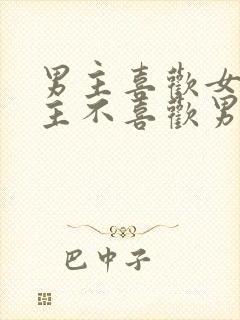 男主喜歡女
主不喜歡男
巴中子